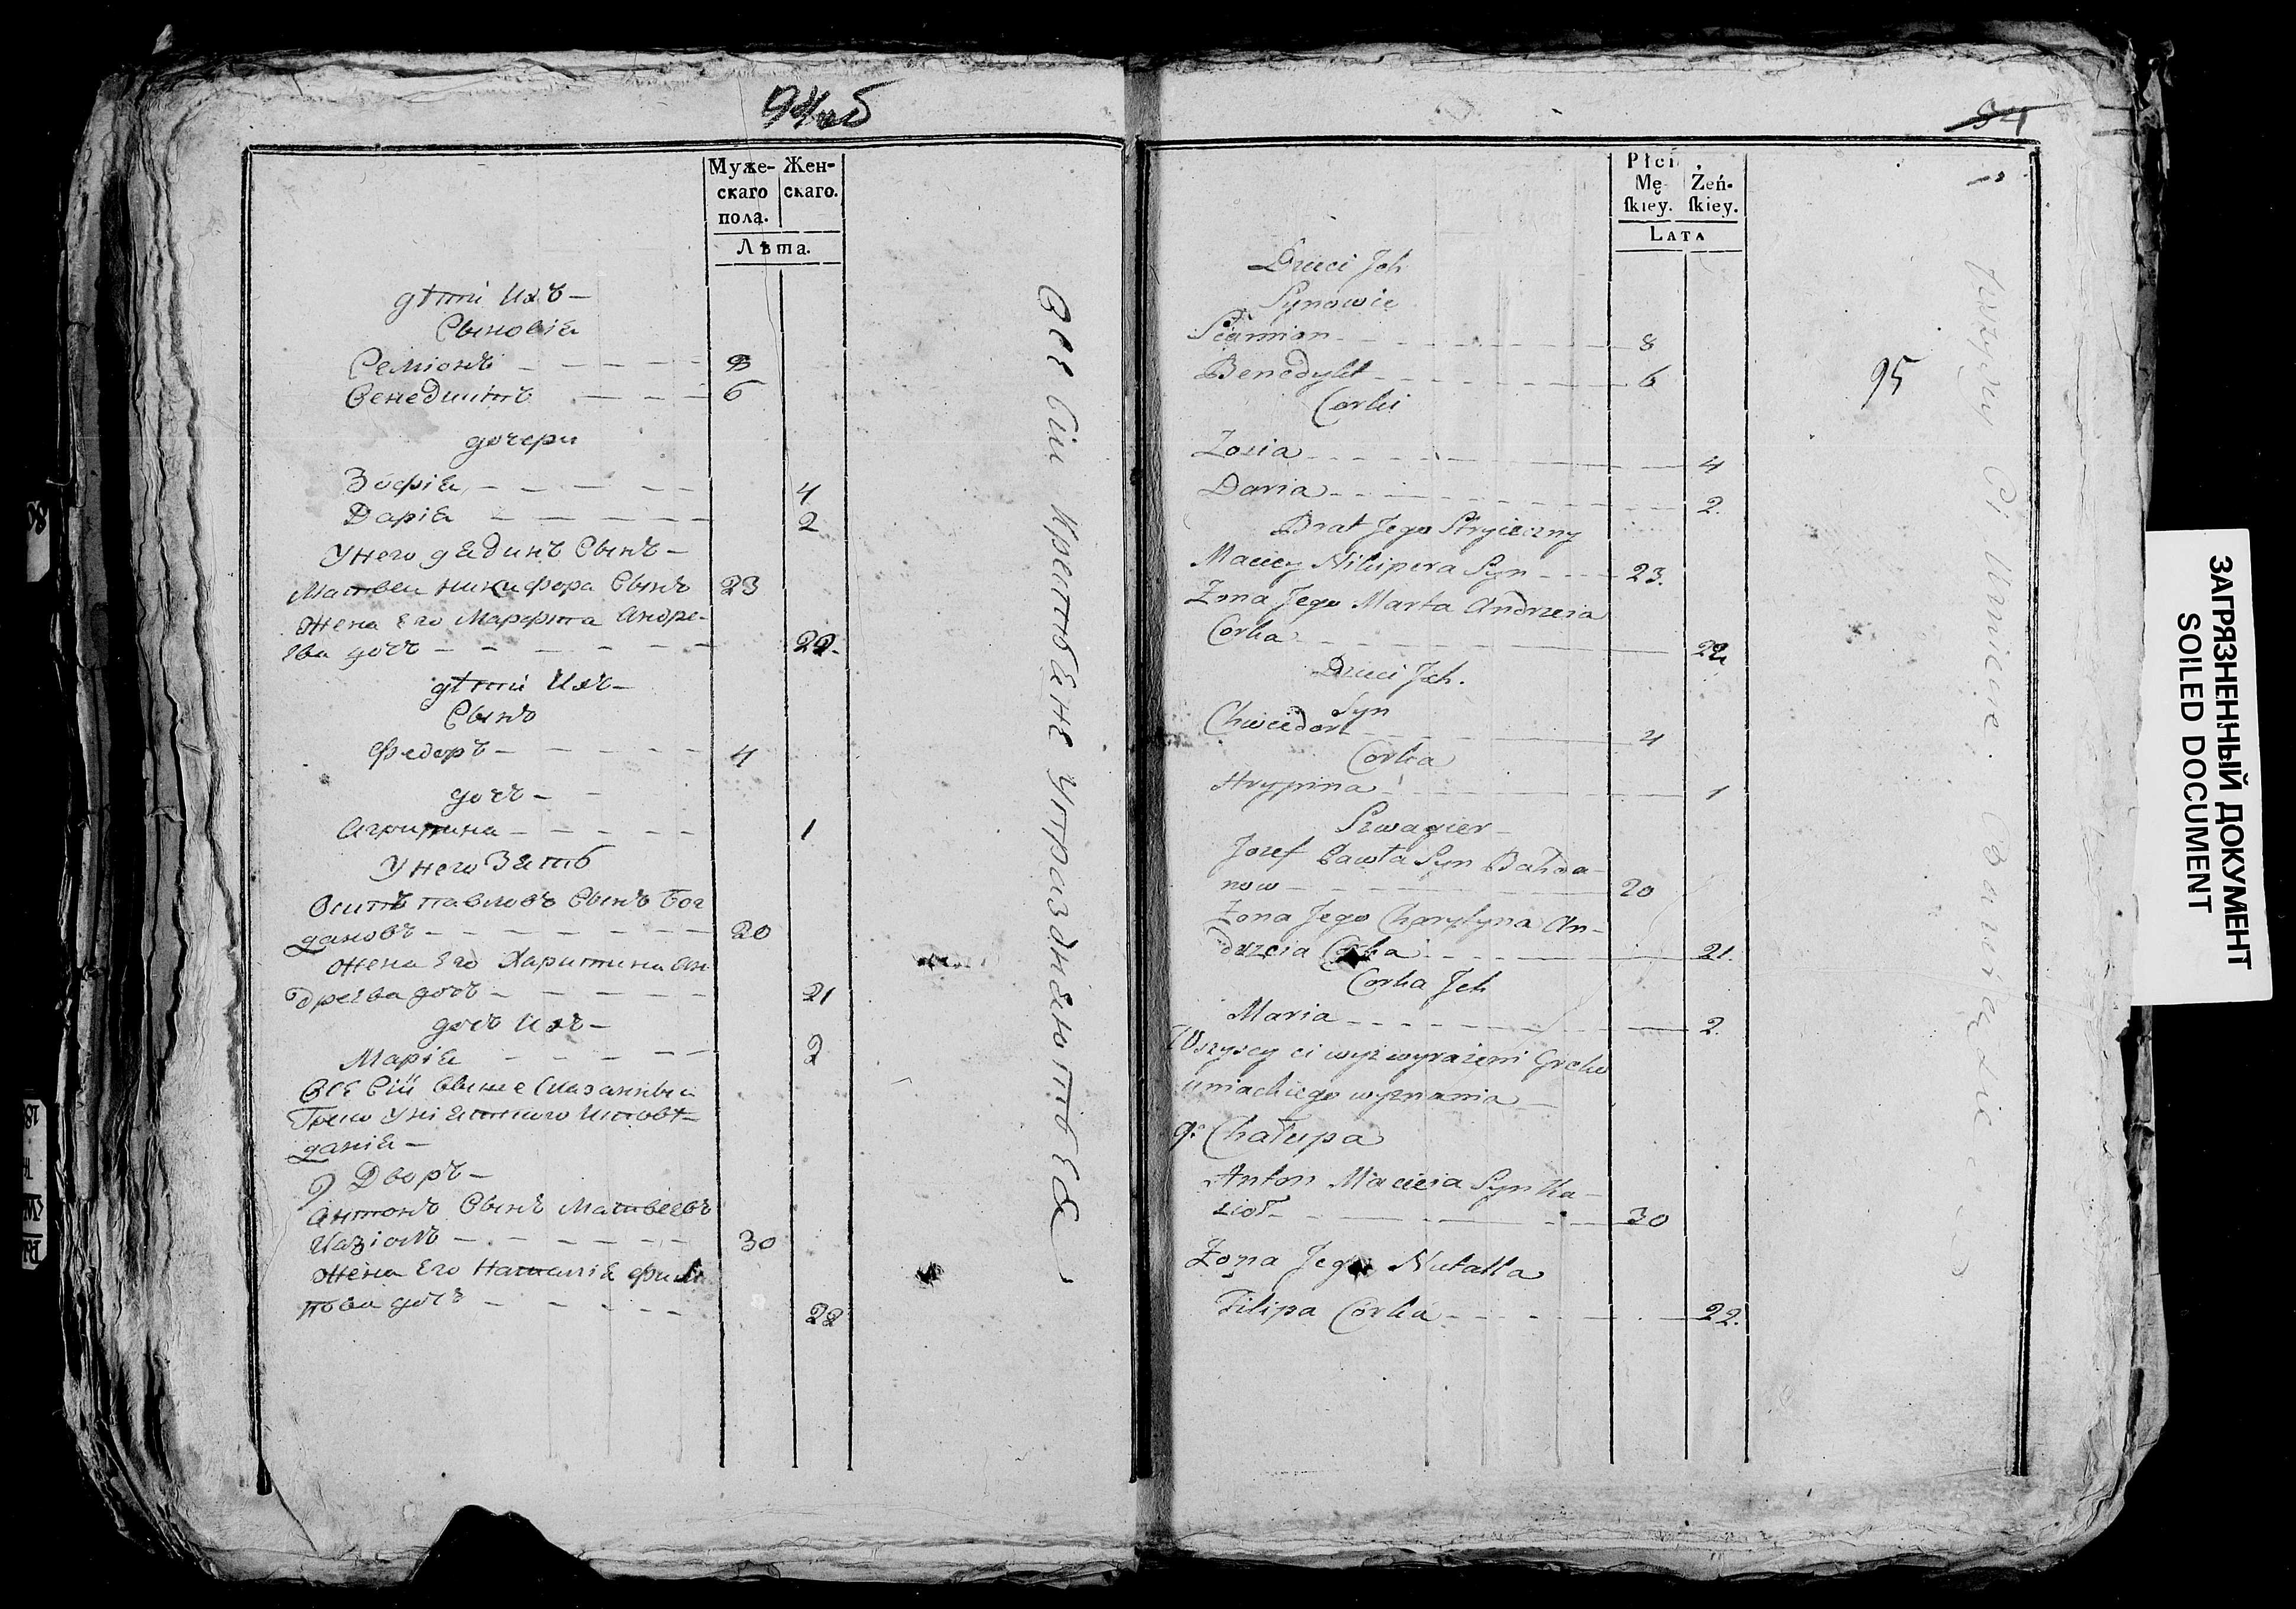 94об
Муже-
скаго
пола.
Жен-
скаго.
Лѣта.
дѣти Ихъ –
Сыновія
Семіонъ 8
Венедиктъ 6
дочери
Зофія 4
Дарія 2
У него дядинъ Сынъ –
Матвеи никифора Сынъ 23
Жена Его Марфта Андре-
ева дочь 22
дѣти Ихъ –
Сынъ
Федоръ 4
дочь –
Агрипина 1
У него Зять
Осипъ павловъ Сынъ Бог
дановъ 20
Жена Его Харитина Ан
дреева дочь 21
дочь Ихъ –
Марія 2
Всѣ Сіи выше Сказанныи
Греко Уніятского Исповѣ-
данія –
9 Дворъ –
Антонъ Сынъ Матвѣевъ
Казіолъ 30
Жена Его Наталія фили
пова дочь 22
Всѣ Сіи Крестьяне Упраздняются
94
Płci
Mę-
ſkiey.
Żeń-
ſkiey.
LATA
95
Dzieci Jch
Synowie
Siamion 8
Benedykt 6
Corki
Zosia 4
Daria 2.
Brat Jego Stryieczny
Maciey Nikipera Syn 23.
Zona Jego Marta Andrzeia
Corka 22
Dzieci Jch.
Syn
Chwiedor 4
Corka
Hrypina 1
Szwagier
Jozef Pawła Syn Bahda
now 20
Zona Jego Charytyna An-
drzeia Corka 21.
Corka Jch
Maria 2.
Wszyscy ci wyż wyrażeni Greko
uniackiego wyznania
9. Chałupa
Anton Macieia Syn Ka-
zioł 30
Zona Jego Natalla
Filipa Corka 22.
Wszyscy Ci
ЗАГРЯЗНЕННЫЙ ДОКУМЕНТ
SOILED DOCUMENT